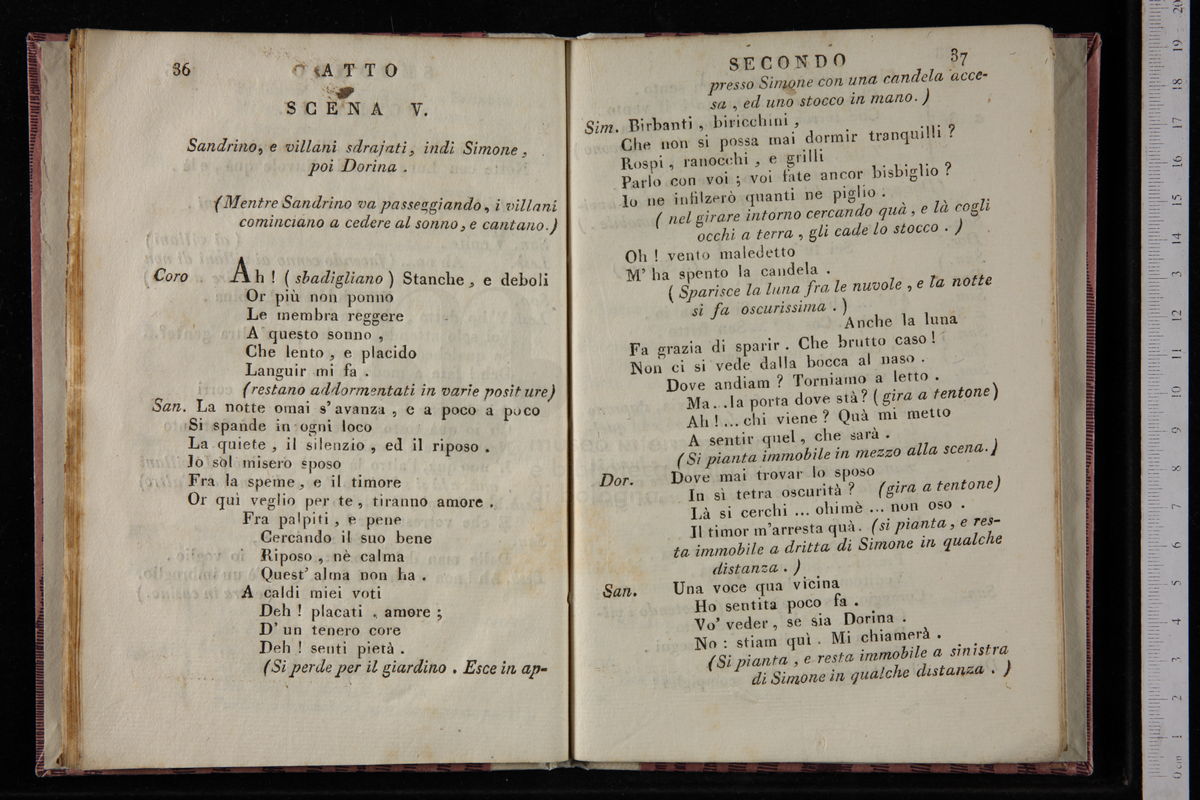 36
ATTO
SCENA V.
Sandrino, e villani sdrajati, indi Simone,
poi Dorina .
(Mentre Sandrino va passeggiando, i villani
cominciano a cedere al sonno, e cantano.)
Coro Ah ! ( sbadigliano ) Stanche, e deboli
Or più non ponno
Le membra reggere
A questo sonno ,
Che lento , e placido
Languir mi fa .
(restano addormentati in varie positure)
San. La notte omai s' avanza , e a poco a poco
Si spande in ogni loco
La quiete , il silenzio , ed il riposo .
Io sol misero sposo
Fra la speme, e il timore
Or quì veglio per te , tiranno amore .
Fra palpiti , e pene
Cercando il suo bene
Riposo , nè calma
Quest' alma non ha .
A caldi miei voti
Deh ! placati , amore ;
D' un tenero core
Deh ! senti pietà .
(Si perde per il giardino . Esce in ap-
SECONDO
37
presso Simone con una candela acce-
sa , ed uno stocco in mano. )
Sim. Birbanti , biricchini ,
Che non si possa mai dormir tranquilli ?
Rospi , ranocchi , e grilli
Parlo con voi ; voi fate ancor bisbiglio ?
Io ne infilzerò quanti ne piglio .
( nel girare intorno cercando quà , e là cogli
occhi a terra , gli cade lo stocco . )
Oh ! vento maledetto
M' ha spento la candela .
( Sparisce la luna fra le nuvole , e la notte
si fa oscurissima . )
Anche la luna
Fa grazia di sparir . Che brutto caso !
Non ci si vede dalla bocca al naso .
Dove andiam ? Torniamo a letto .
Ma...la porta dove stà? ( gira a tentone )
Ah ! ... chi viene ? Quà mi metto
A sentir quel , che sarà .
(Si pianta immobile in mezzo alla scena.)
Dor. Dove mai trovar lo sposo
In sì tetra oscurità ? (gira a tentone)
Là si cerchi ... ohimè ... non oso .
Il timor m'arresta quà. (si pianta , e res-
ta immobile a dritta di Simone in qualche
distanza . )
San. Una voce qua vicina
Ho sentita poco fa .
Vo' veder , se sia Dorina .
No : stiam quì . Mi chiamerà .
(Si pianta , e resta immobile a sinistra
di Simone in qualche distanza . )